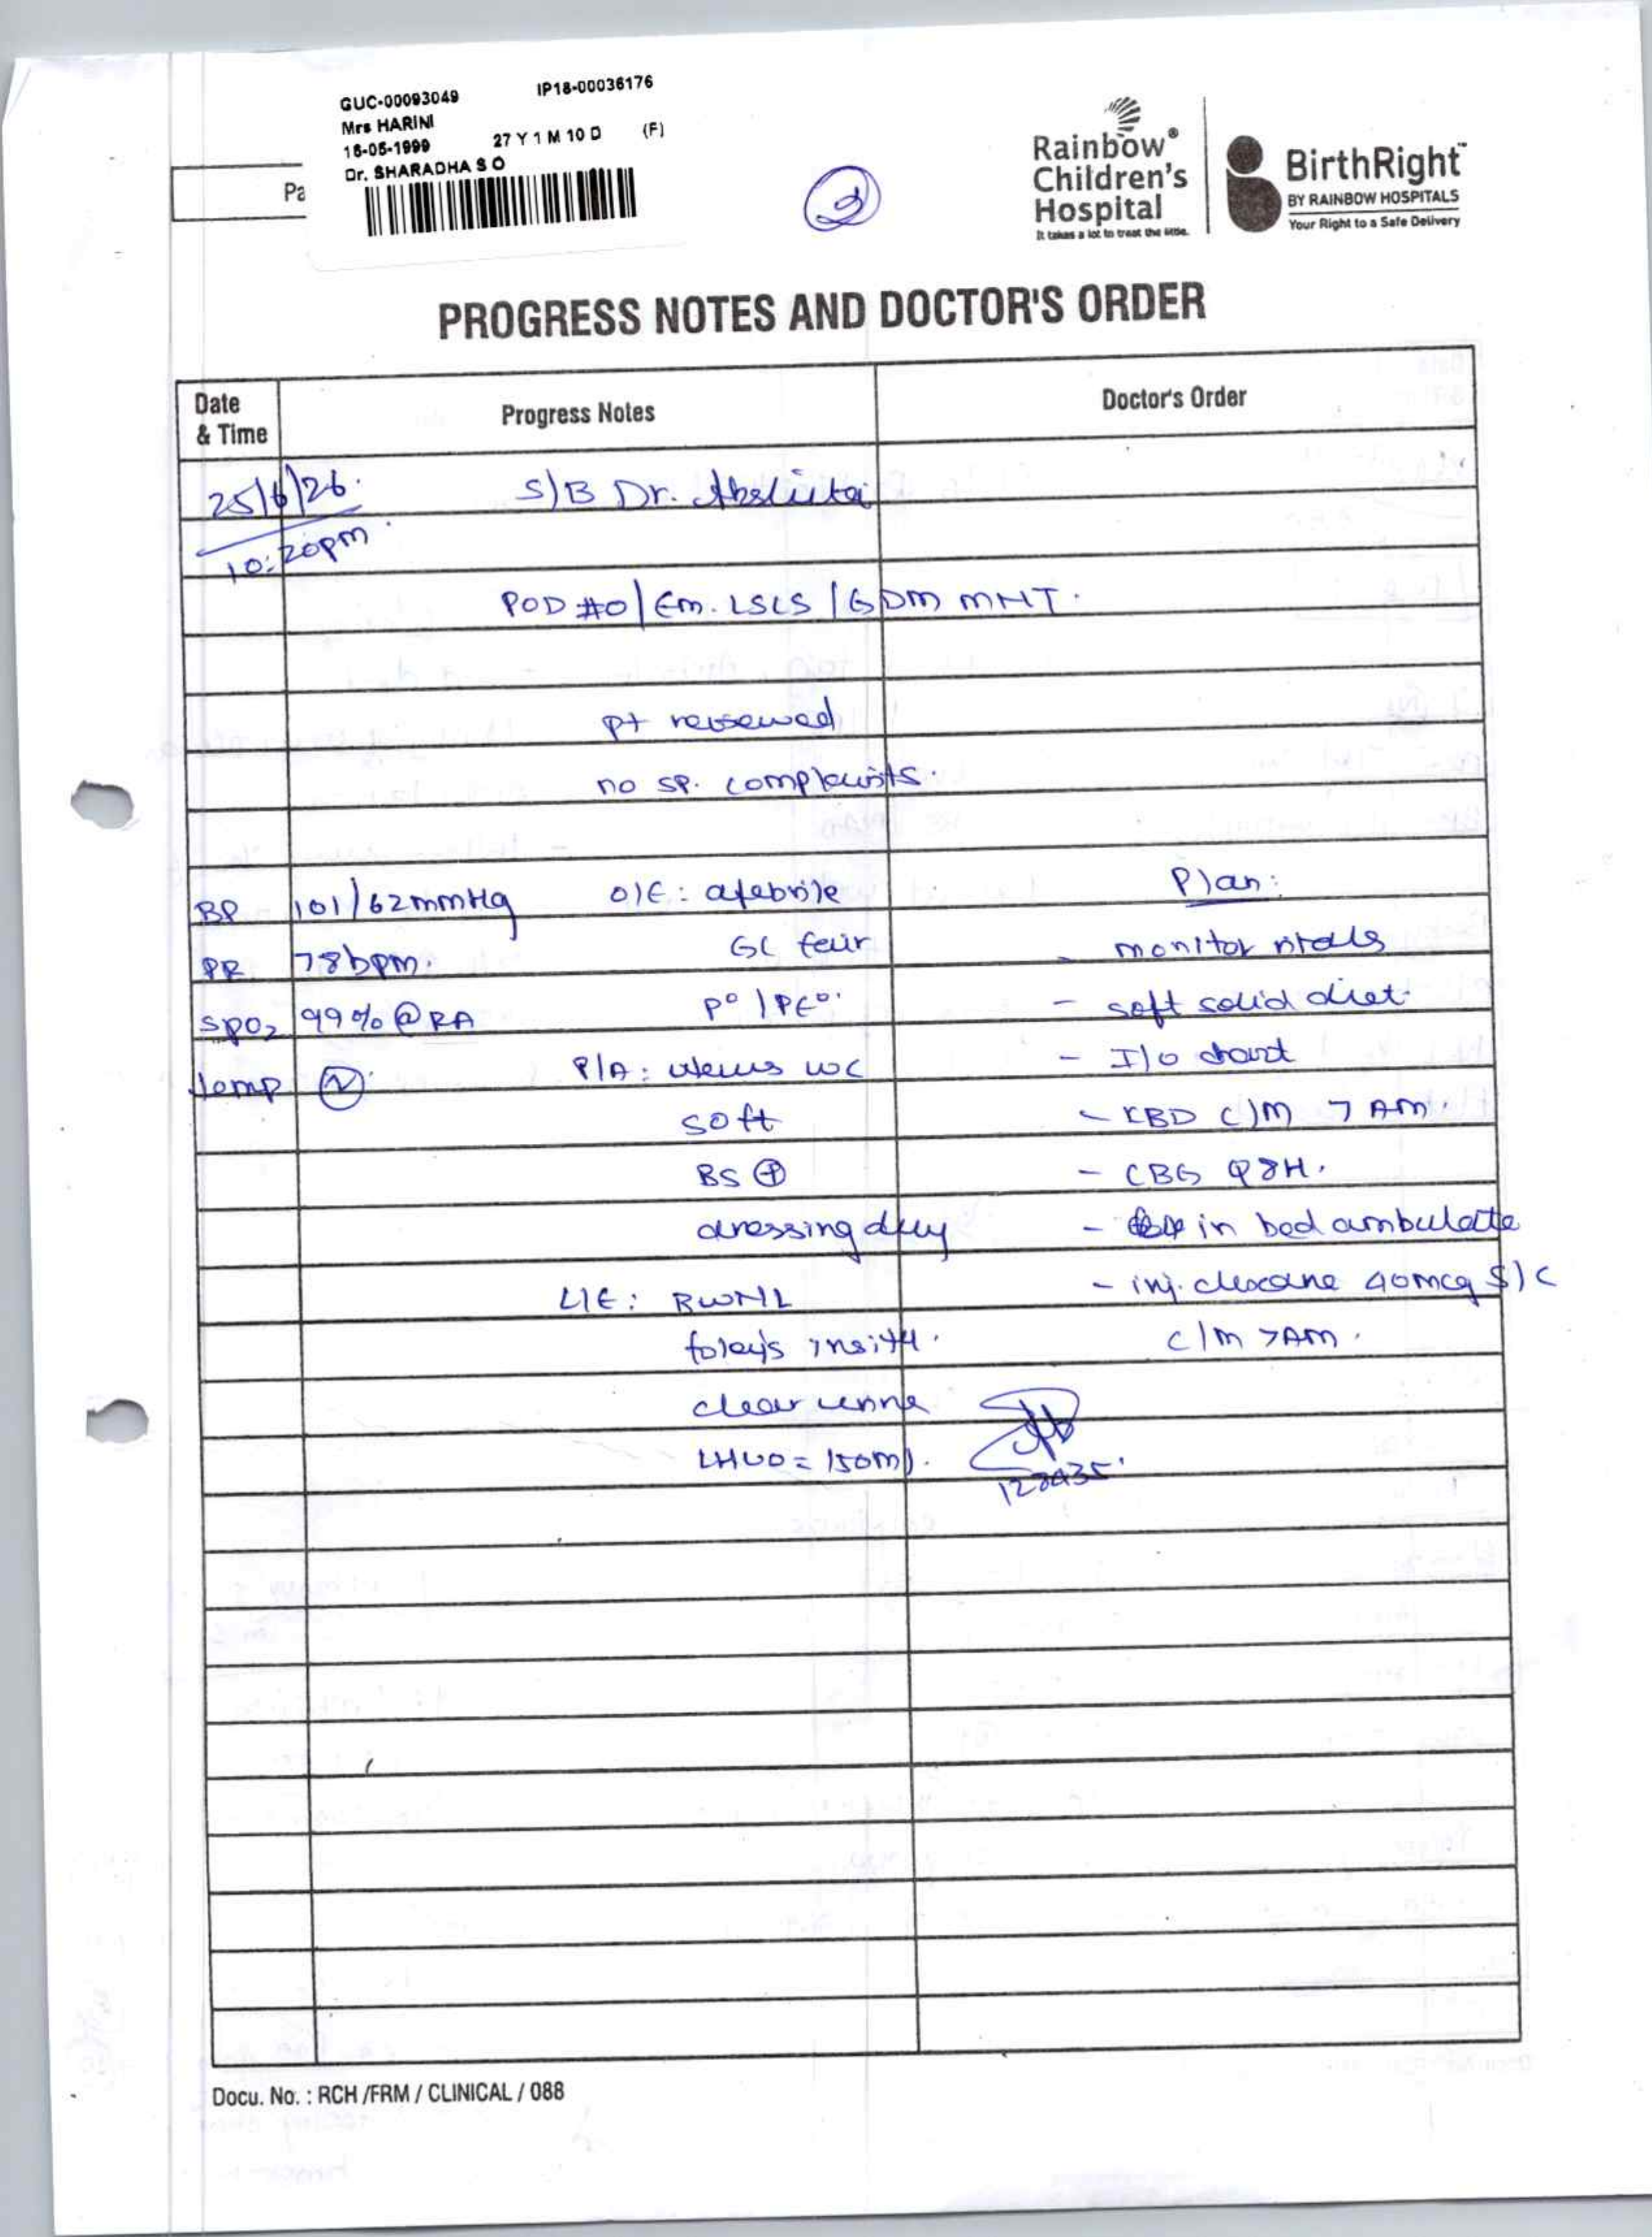 GUC-00093049 IP18-00036176
Mrs HARINI
16-05-1999 27 Y 1 M 10 D (F)
Dr. SHARADHA S O
Pa
2
Rainbow®
Children's
Hospital
It takes a lot to treat the little.
BirthRight™
BY RAINBOW HOSPITALS
Your Right to a Safe Delivery
PROGRESS NOTES AND DOCTOR'S ORDER
Date & Time Progress Notes Doctor's Order
25/6/26. S/B Dr.
10:20pm
POD #0/Em. LSCS / GDM MNT.
pt reviewed
no sp. complaints.
BP 101/62mmHg O/E: afebrile Plan:
PR 78bpm. GC fair - monitor vitals
SPO2 99% @ RA P° / PE° - soft solid diet.
temp (N) P/A: uterus WC - I/O chart
soft - CBD C/M 7 AM.
BS ⊕ - CBG Q8H.
dressing dry - in bed ambulate
L/E: BWNL - inj. clexane 40mcg S/C
foley's insitu. C/M 7AM.
clear urine
LHUO = 150ml.
Docu. No. : RCH /FRM / CLINICAL / 088